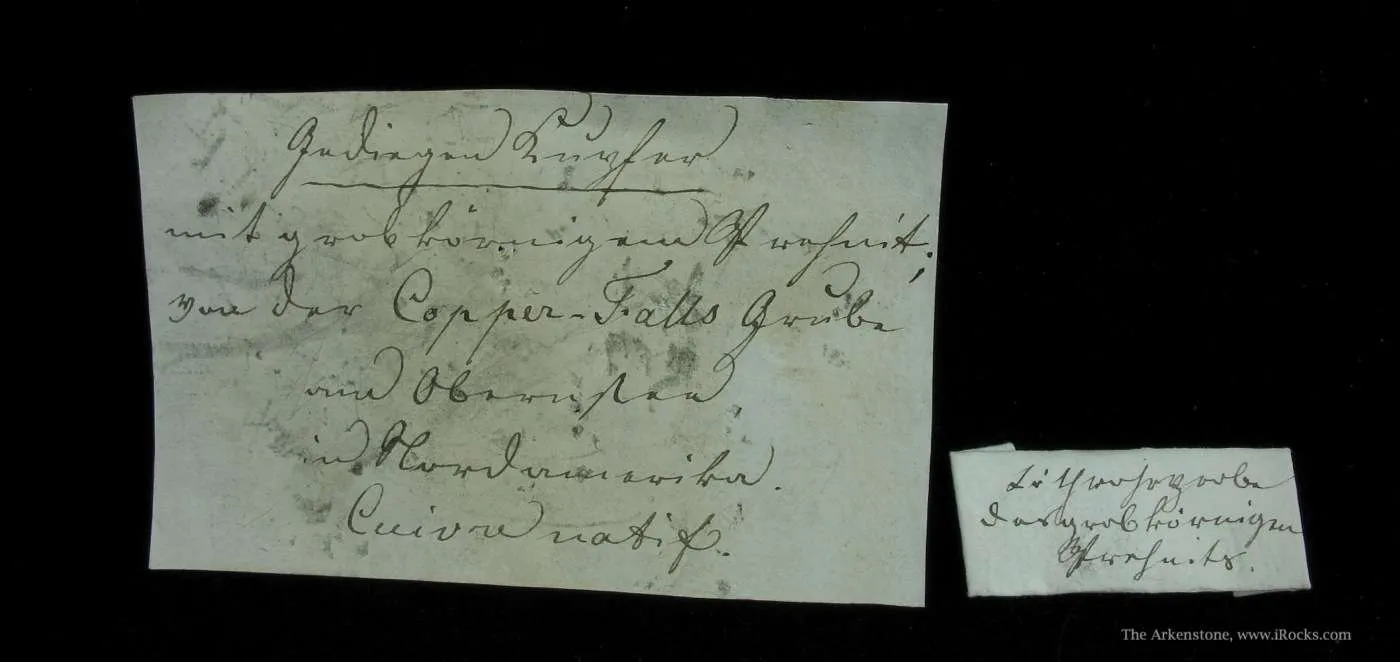 Gediegen Kupfer
mit grobkörnigem Prehnit,
von der Copper-Falls Grube
am Obernsee,
in Nordamerika.
Cuivre natif.
Löthrohrprobe
des grobkörnigen
Prehnits.
The Arkenstone, www.iRocks.com